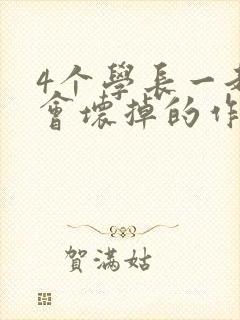 4个學長一
會壞掉的作
賀滿姑